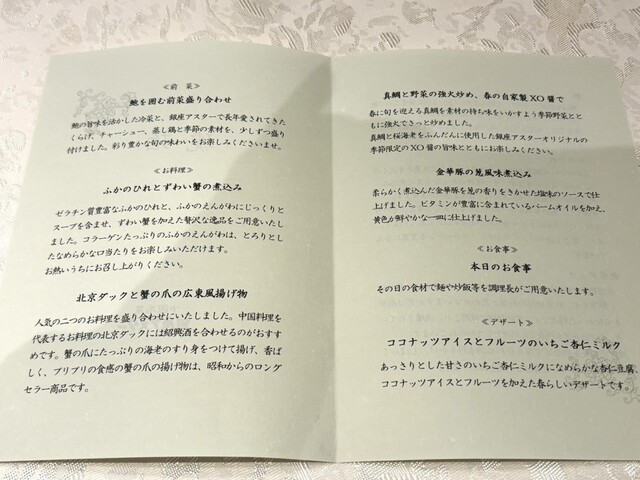 ≪前　菜≫
鮑を囲む前菜盛り合わせ
鮑の旨味を活かした冷菜と、銀座アスターで長年愛されてきた
くらげ、チャーシュー、蒸し鶏と季節の素材を、少しずつ盛り
付けました。彩り豊かな旬の味わいをお楽しみくださいませ。
≪お料理≫
ふかのひれとずわい蟹の煮込み
ゼラチン質豊富なふかのひれと、ふかのえんがわにじっくりと
スープを含ませ、ずわい蟹を加えた贅沢な逸品をご用意いたし
ました。コラーゲンたっぷりのふかのえんがわは、とろりとし
たなめらかな口当たりをお楽しみいただけます。
お熱いうちにお召し上がりください。
北京ダックと蟹の爪の広東風揚げ物
人気の二つのお料理を盛り合わせにいたしました。中国料理を
代表するお料理の北京ダックには紹興酒を合わせるのがおすす
めです。蟹の爪にたっぷりの海老のすり身をつけて揚げ、香ば
しく、プリプリの食感の蟹の爪の揚げ物は、昭和からのロング
セラー商品です。
真鯛と野菜の強火炒め、春の自家製XO醤で
春に旬を迎える真鯛を素材の持ち味をいかすよう季節野菜とと
もに強火でさっと炒めました。
真鯛と桜海老をふんだんに使用した銀座アスターオリジナルの
季節限定のXO醤の旨味とともにお楽しみください。
金華豚の葱風味煮込み
柔らかく煮込んだ金華豚を葱の香りをきかせた塩味のソースで仕
上げました。ビタミンが豊富に含まれているパームオイルを加え、
黄色が鮮やかな一皿に仕上げました。
≪お食事≫
本日のお食事
その日の食材で麺や炒飯等を調理長がご用意いたします。
≪デザート≫
ココナッツアイスとフルーツのいちご杏仁ミルク
あっさりとした甘さのいちご杏仁ミルクになめらかな杏仁豆腐、
ココナッツアイスとフルーツを加えた春らしいデザートです